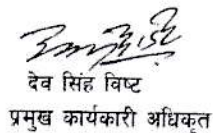 देव सिंह विष्ट
प्रमुख कार्यकारी अधिकृत